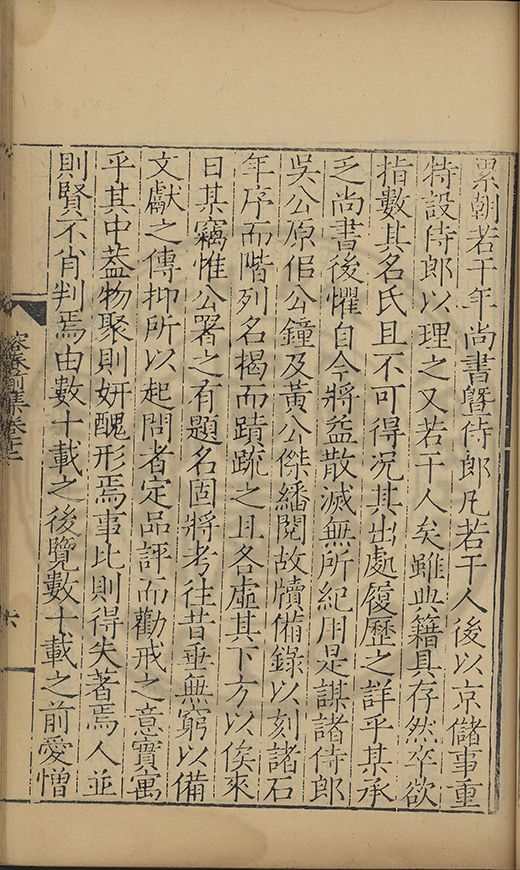 累朝若干年尚書曁侍郎凡若干人後以京儲事重
特設侍郎以理之又若干人矣雖典籍具存然卒欲
指數其名氏且不可得况其出處履歷之詳乎其承
乏尚書後懼自今將益散滅無所紀用是謀諸侍郎
吳公原佀公鐘及黃公傑繙閱故牘備錄以刻諸石
年序而階列名揭而蹟䟽之且各虛其下方以俟來
日其竊惟公署之有題名固將考往昔垂無窮以備
文獻之傳抑所以起問者定品評而勸戒之意實寓
乎其中葢物聚則妍醜形焉事比則得失著焉人並
則賢不肖判焉由數十載之後覽數十載之前愛憎
容春前集卷十二
六